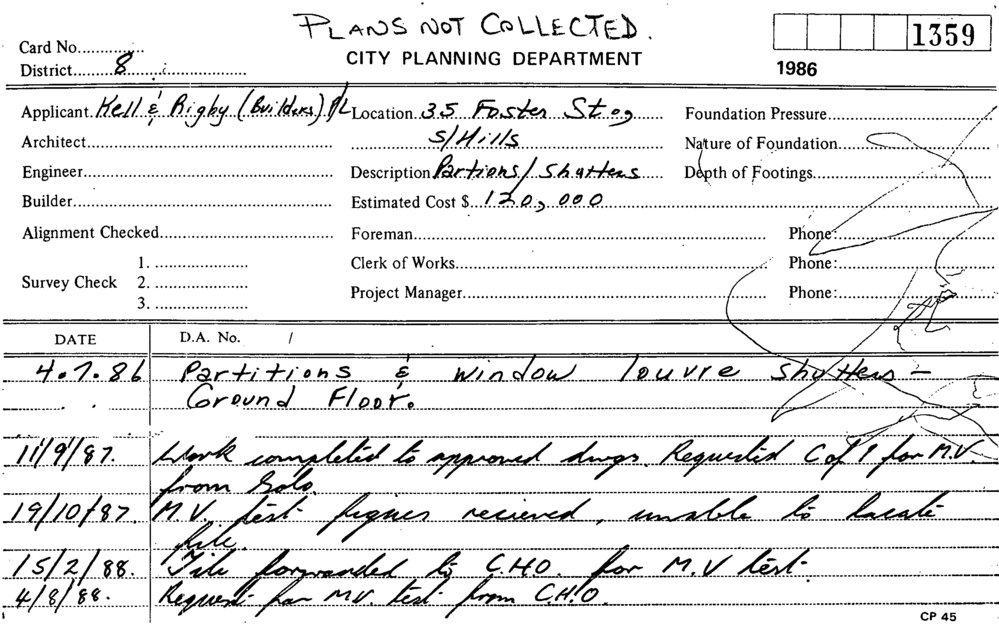 PLANS NOT COLLECTED.
Card No.
CITY PLANNING DEPARTMENT
1359
District 8
1986
Applicant Kell & Rigby (Builders) P/L Location 35 Foster St.,
Foundation Pressure
Architect
S/Hills
Nature of Foundation
Engineer
Description Partions/Shutters
Depth of Footings
Builder
Estimated Cost $ 120,000
Alignment Checked
Foreman
Phone:
Survey Check 1.
Clerk of Works
Phone:
2.
3.
Project Manager
Phone:
DATE D.A. No. /
4.7.86 Partitions & window louvre shutters –
Ground Floor.
11/9/87. Work completed to approved dwgs. Requested C of for M.V.
from
19/10/87. M.V. test figures recieved, unable to locate
file.
15/2/88. File forwarded to C.H.O. for M.V test.
4/8/88. Request for M.V. test from C.H.O.
CP 45